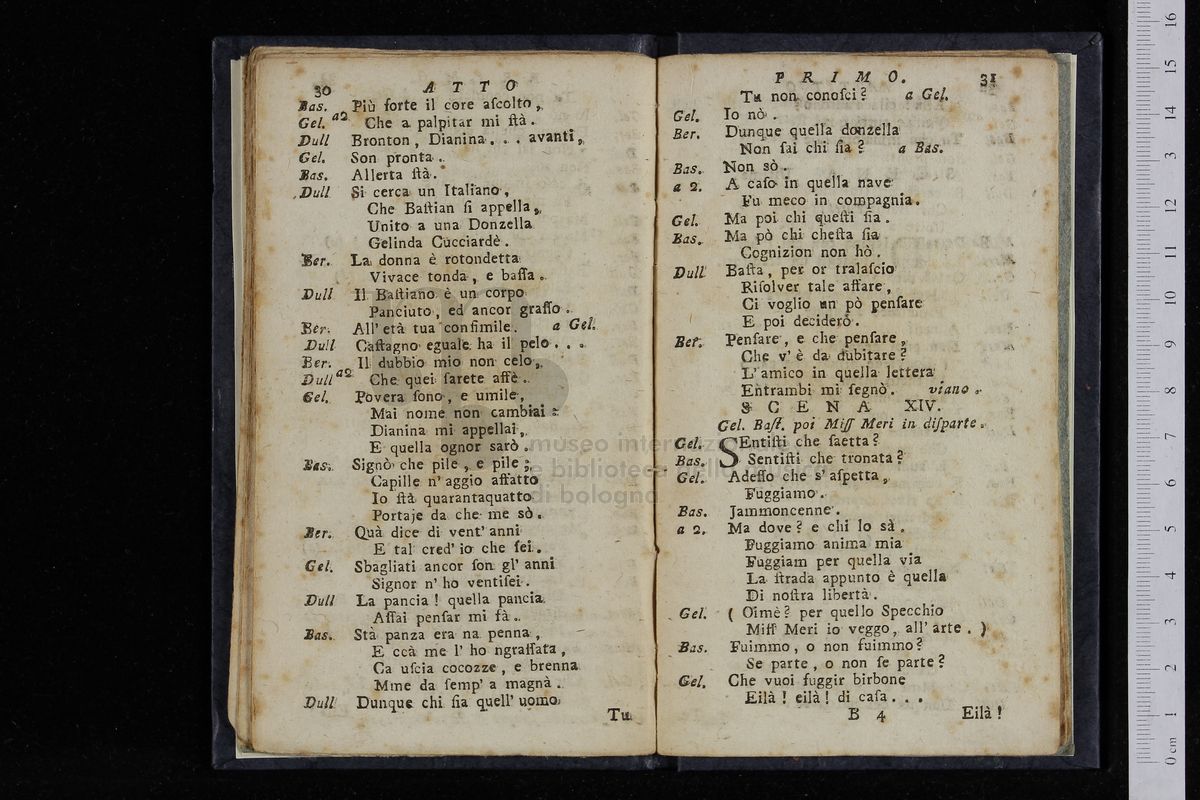 30 ATTO
Bas. Più forte il core aſcolto,
Gel. a2 Che a palpitar mi ſtà.
Dull Bronton, Dianina... avanti,
Gel. Son pronta.
Bas. Allerta ſtà.
Dull Si cerca un Italiano,
Che Baſtian ſi appella,
Unito a una Donzella
Gelinda Cucciardè.
Ber. La donna è rotondetta
Vivace tonda, e baſſa.
Dull Il Baſtiano è un corpo
Panciuto, ed ancor graſſo.
Ber. All' età tua conſimile. a Gel.
Dull Caſtagno eguale ha il pelo...
Ber. Il dubbio mio non celo,
Dull a2 Che quei ſarete affè.
Gel. Povera ſono, e umile,
Mai nome non cambiai:
Dianina mi appellai,
E quella ognor ſarò.
Bas. Signò che pile, e pile;
Capille n' aggio affatto
Io ſtà quarantaquatto
Portaje da che me sò.
Ber. Quà dice di vent' anni
E tal cred' io che ſei.
Gel. Sbagliati ancor ſon gl' anni
Signor n' ho ventiſei.
Dull La pancia! quella pancia
Aſſai penſar mi fà.
Bas. Stà panza era na penna,
E ccà me l' ho ngraſſata,
Ca uſcia cocozze, e brenna
Mme da ſemp' a magnà.
Dull Dunque chi ſia quell' uomo
Tu
PRIMO. 31
Tu non conoſci? a Gel.
Gel. Io nò.
Ber. Dunque quella donzella
Non ſai chi ſia? a Bas.
Bas. Non sò.
a 2. A caſo in quella nave
Fu meco in compagnia.
Gel. Ma poi chi queſti ſia.
Bas. Ma pò chi cheſta ſia
Cognizion non hò.
Dull Baſta, per or tralaſcio
Riſolver tale affare,
Ci voglio un pò penſare
E poi deciderò.
Ber. Penſare, e che penſare,
Che v' è da dubitare?
L' amico in quella lettera
Entrambi mi ſegnò. viano.
SCENA XIV.
Gel. Baſt. poi Miſſ Meri in diſparte.
Gel. SEntiſti che ſaetta?
Bas. Sentiſti che tronata?
Gel. Adeſſo che s' aſpetta,
Fuggiamo.
Bas. Jammoncenne.
a 2. Ma dove? e chi lo sà.
Fuggiamo anima mia
Fuggiam per quella via
La ſtrada appunto è quella
Di noſtra libertà.
Gel. ( Oimè? per quello Specchio
Miſſ Meri io veggo, all' arte. )
Bas. Fuimmo, o non fuimmo?
Se parte, o non ſe parte?
Gel. Che vuoi fuggir birbone
Eilà! eilà! di caſa...
B 4 Eilà!